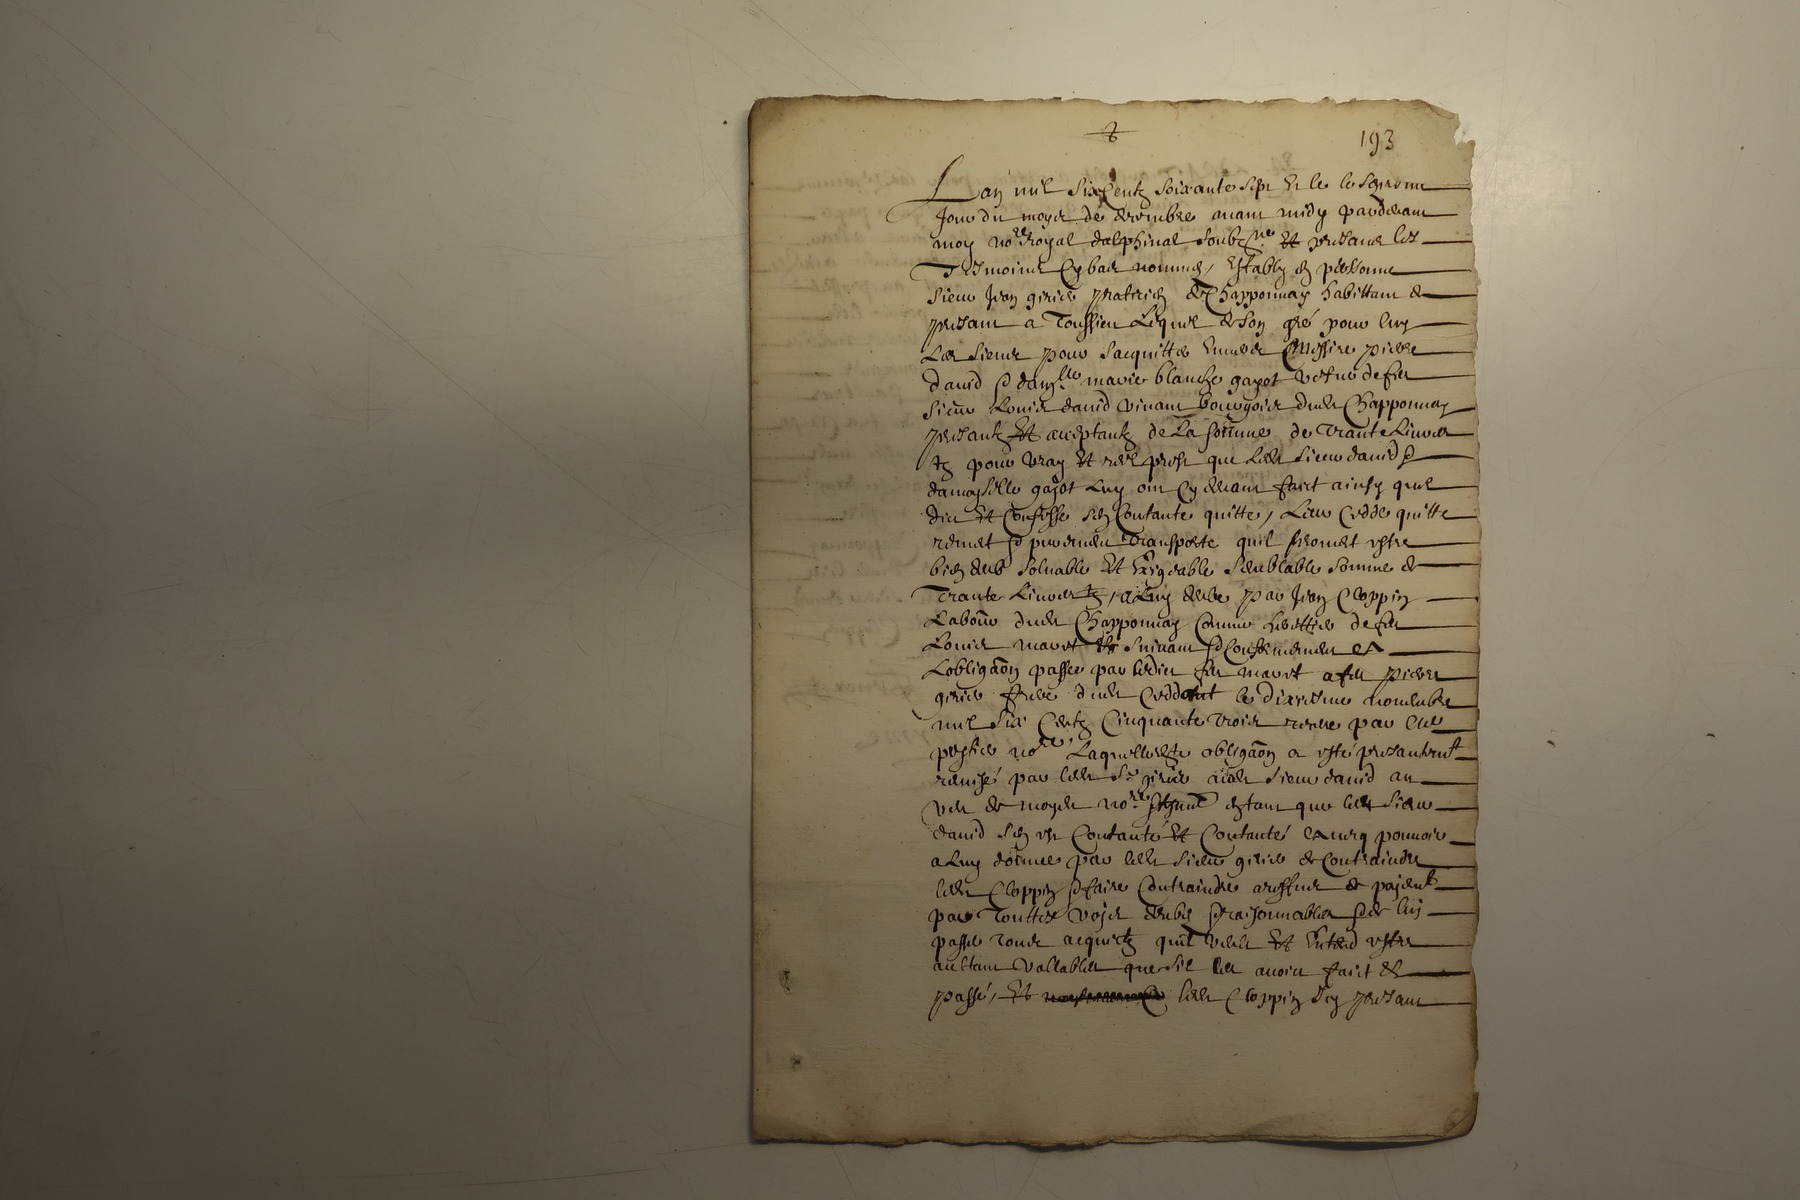 193
Lan mil six centz soixante sept et le
Jour du moys de decembre avant midy pardevant
moy no.re royal dalphinal soubz.ne et presans les
Tesmoins cy bas nommes, estably en personne
sieur Jean girie praticien de Chapponnay habittant de
presant a Toussieu Lequel de son gré pour luy
Les siens pour sacquitte envers Messire pierre
david & dam.lle marie blanche gayot vefve de feu
sieur Louis david vivant bourgois dudt Chapponnay
presantz et aceptantz de La somme de Trante Livres
tz pour vray et reel prest que ledt sieur david &
damoyselle gayot luy ont cy devant faict ainsy quil
dict et Confesse sen Contante quitte, Leur cedde quitte
remet & purement Transporte quil promet estre
bien deub solvable et Exigeable semblable somme de
Trante Livres tz, a Luy deube par Jean Cloppin
Labour dudt Chapponnay comme herittier de feu
Louis maret suivant & Conformement a
Lobligaon passee par ledict feu maret a feu pierre
girie frere dudt ceddant le dixiesme novembre
mil six Centz Cinquante trois receue par
no.re, Laquelle obligaon a esté presantemt
remise par ledt sr girie audt sieur david au
veu de moydt no.re en tant que ledt sieur
david sen est Contanté et Contante avecq pouvoir
a Luy donne par ledt sieur girie de Contraindre
ledt Cloppin & faire Contraindre au payemt
par Touttes voyes deubes & raisonnables & de luy
passer tous acquitz quil veult et Entend estre
aultant vallables que sil les avoict faict &
passé, et ledt Cloppin Icy presant